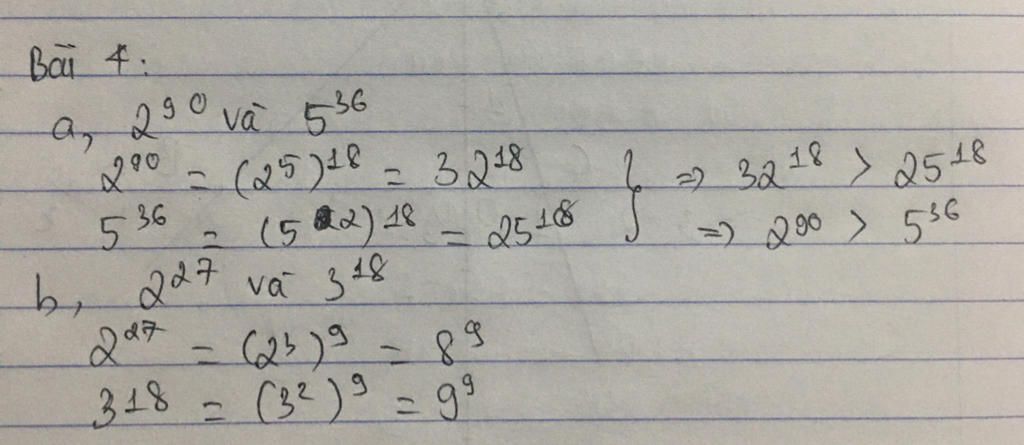 Bài 4:
a, 2⁹⁰ và 5³⁶
2⁹⁰ = (2⁵)¹⁸ = 32¹⁸ } => 32¹⁸ > 25¹⁸
5³⁶ = (5²)¹⁸ = 25¹⁸ => 2⁹⁰ > 5³⁶
b, 2²⁷ và 3¹⁸
2²⁷ = (2³)⁹ = 8⁹
3¹⁸ = (3²)⁹ = 9⁹